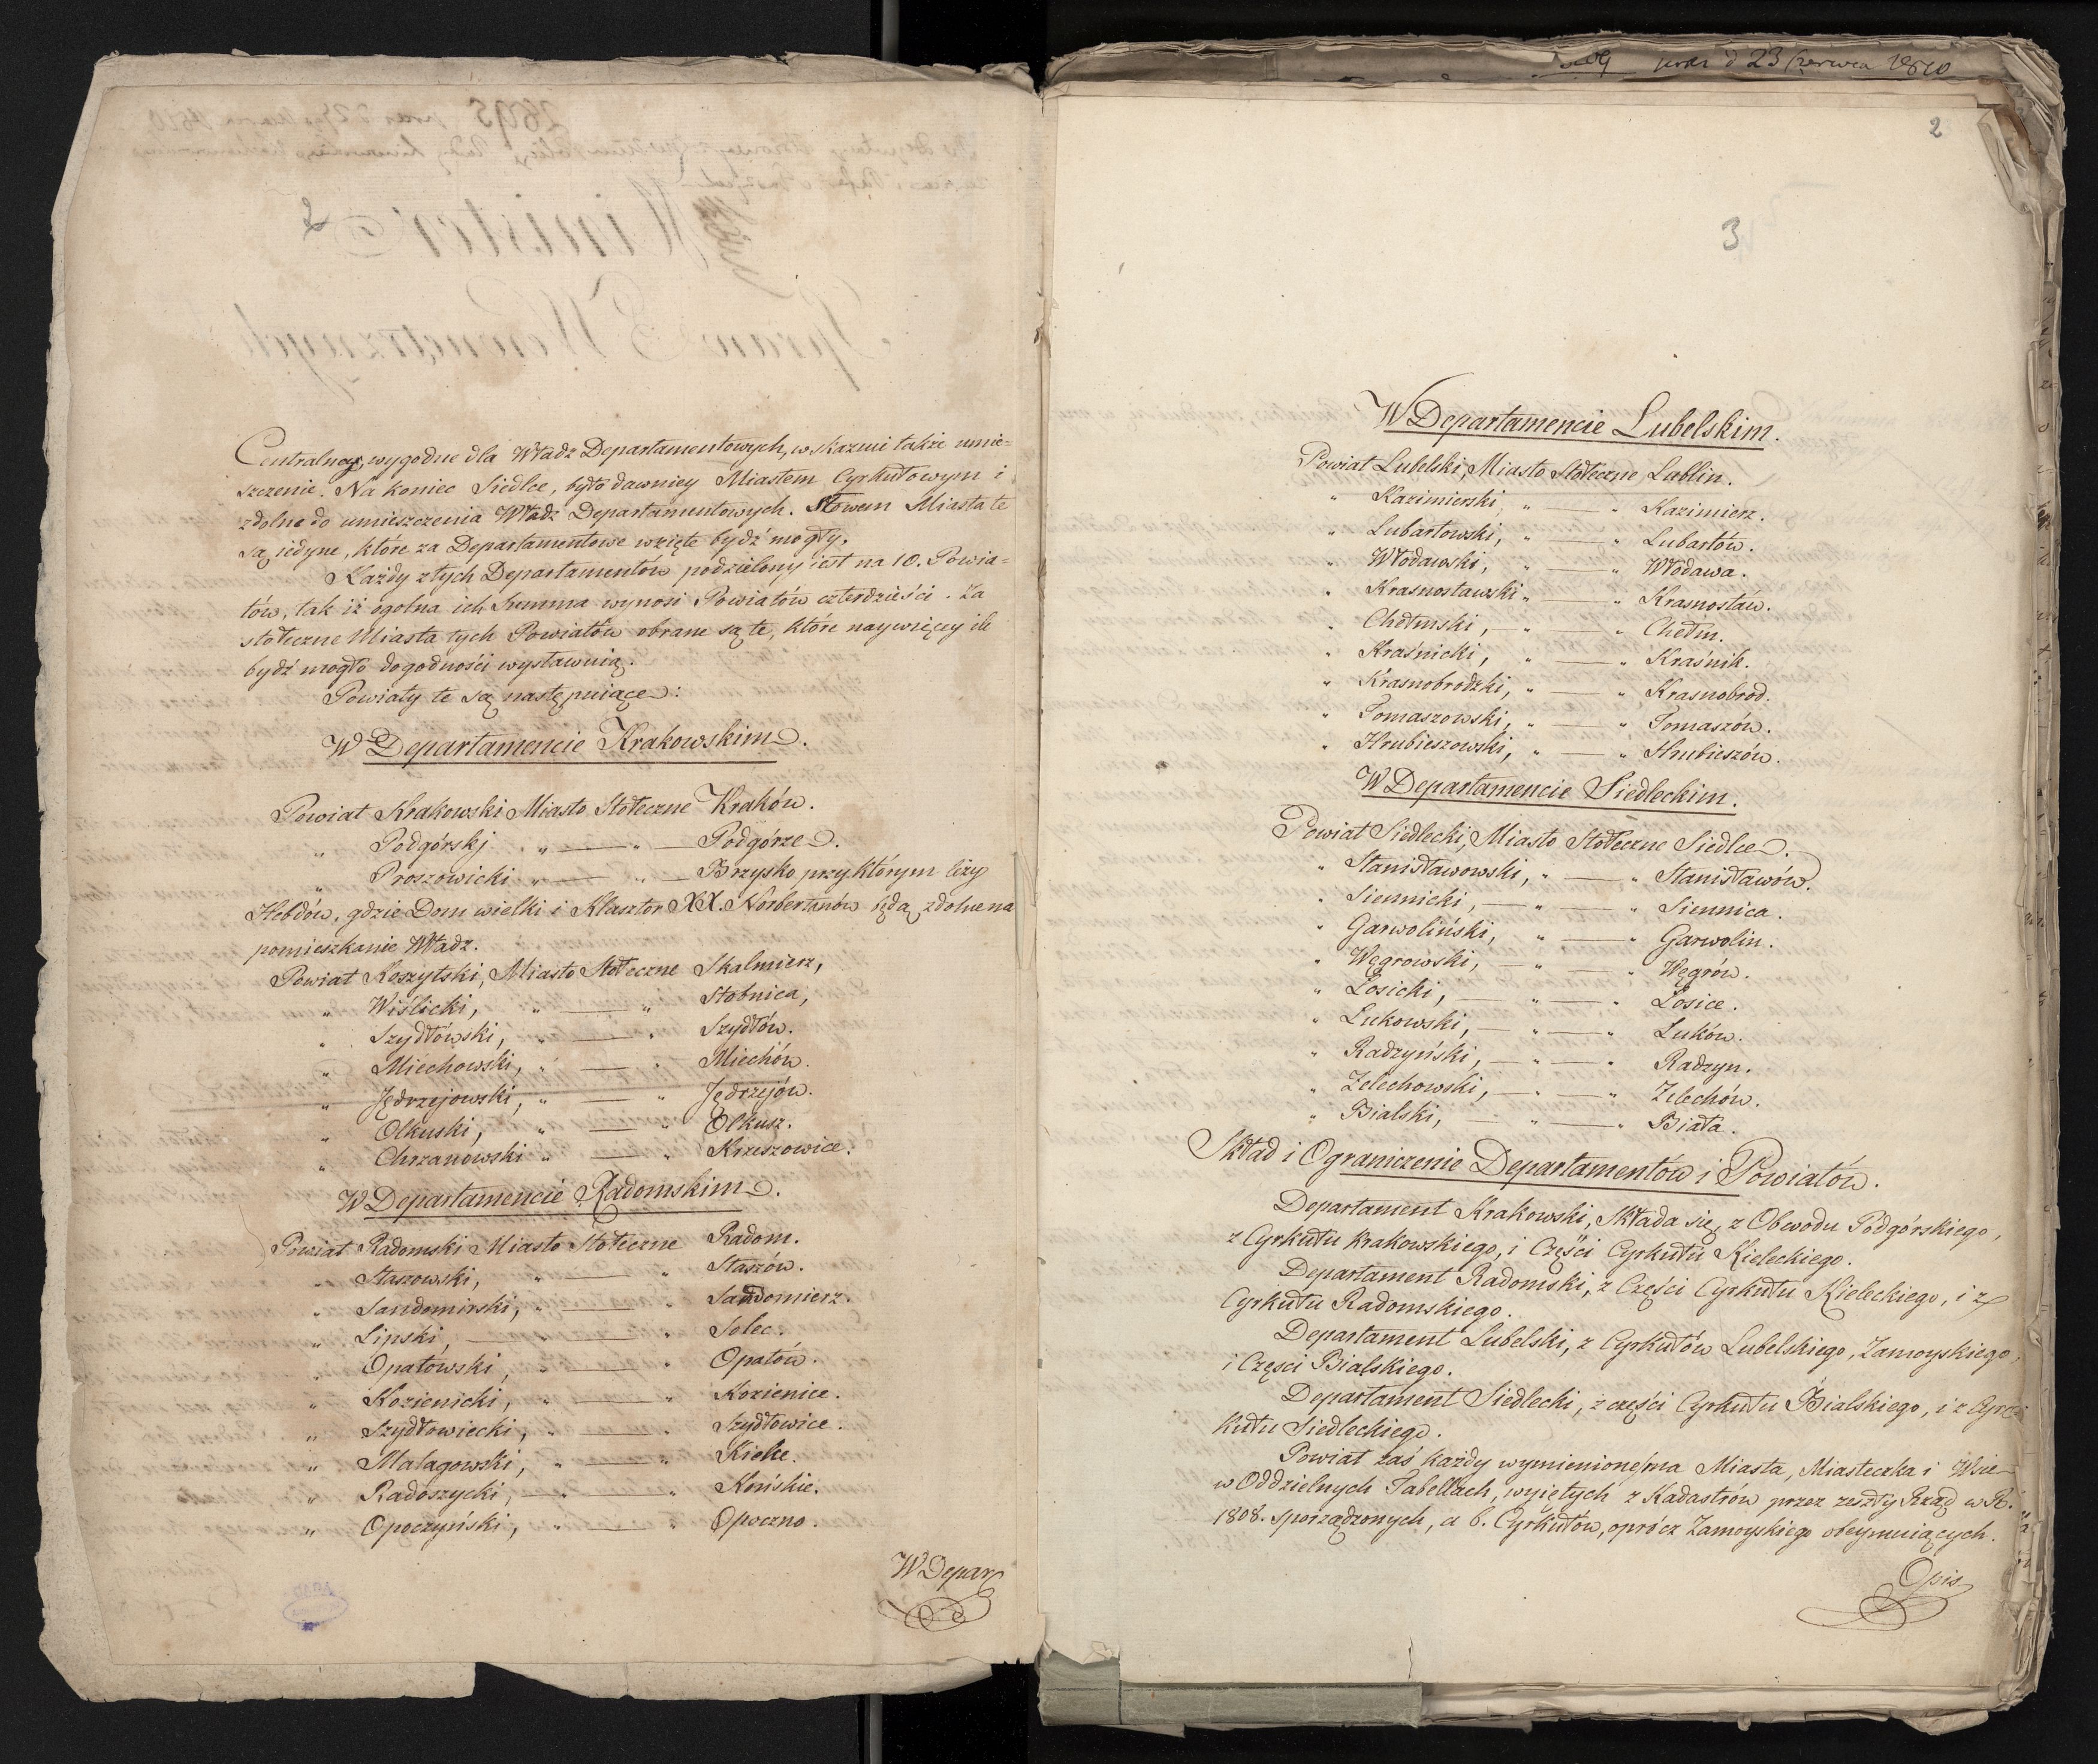 Centralney, wygodne dla Władz Departamentowych, wskazuie także umie=
szczenie. Na koniec Siedlce, było dawniey Miastem Cyrkułowym i
zdolne do umieszczenia Władz Departamentowych. Słowem Miasta te
są iedyne, które za Departamentowe wzięte bydź mogły.
Każdy z tych Departamentów podzielony iest na 10. Powia=
tów, tak iż ogolna ich Summa wynosi Powiatów czterdzieści. Za
stołeczne Miasta tych Powiatów obrane są te, które naywięcey ile
bydź mogło dogodności wystawuią.
Powiaty te są następuiące:
W Departamencie Krakowskim.
Powiat Krakowski Miasto Stołeczne Kraków.
„ Podgórskj „ — „ — Podgórze.
„ Proszowicki „ — „ — Brzysko przy którym leży
Hebdów, gdzie Dom wielki i Klasztor XX. Norbertanów będą zdolne na
pomieszkanie Władz.
Powiat Koszytski, Miasto Stołeczne Skalmierz,
„ Wiślicki, „ — „ Stobnica,
„ Szydłówski, „ — „ Szydłów.
„ Miechowski, „ — „ Miechów.
„ Jędrzejowski, „ — „ Jędrzejów.
„ Olkuski, „ — „ Olkusz.
„ Chrzanowski „ — „ Krzeszowice.
W Departamencie Radomskim.
Powiat Radomski Miasto Stołeczne Radom.
„ Staszowski, „ — „ Staszów.
„ Sandomirski, „ — „ Sandomierz.
„ Lipski, — „ Solec.
„ Opatowski, „ — „ Opatów.
„ Kozienicki, „ — „ Kozienice.
„ Szydłowiecki, „ — „ Szydłowice.
„ Małagowski, „ — „ Kielce.
„ Radoszycki, — „ — „ Końskie.
„ Opoczyński, „ — „ Opoczno.
W Depar
23 Czerwca 1810
2
3
W Departamencie Lubelskim.
Powiat Lubelski, Miasto Stołeczne Lublin.
„ Kazimierski, „ — „ Kazimierz.
„ Lubartowski, „ — „ Lubartów.
„ Włodawski, „ — „ Włodawa.
„ Krasnostawski „ — „ Krasnostáw.
„ Chełmski, — „ — „ Chełm.
„ Kraśnicki, „ — „ Kraśnik.
„ Krasnobrodzki, „ — „ Krasnobrod.
„ Tomaszowski, „ — „ Tomaszów.
„ Hrubieszowski, „ — „ Hrubieszów.
W Departamencie Siedleckim.
Powiat Siedlecki, Miasto Stołeczne Siedlce.
„ Stanisławowski, „ — „ Stanisławów.
„ Siennicki, — „ — „ Siennica.
„ Garwoliński, „ — „ Garwolin.
„ Węgrowski, — „ — „ Węgrów.
„ Łosicki, — „ — „ Łosice.
„ Łukowski, — „ — „ Łuków.
„ Radzyński, — „ — „ Radzyn.
„ Żelechowski, — „ — „ Żelechów.
„ Bialski, — „ — „ Biała.
Skład i Ograniczenie Departamentów i Powiatów.
Departament Krakowski, składa się, z Obwodu Podgórskiego,
z Cyrkułu Krakowskiego, i Części Cyrkułu Kieleckiego.
Departament Radomski, z Części Cyrkułu Kieleckiego, i z
Cyrkułu Radomskiego.
Departament Lubelski, z Cyrkułów Lubelskiego, Zamoyskiego,
i Częsci Bialskiego.
Departament Siedlecki, z części Cyrkułu Bialskiego, i z Cyr=
kułu Siedleckiego.
Powiat zaś każdy wymienione ma Miasta, Miasteczka i Wsie
w Oddzielnych Tabellach, wyiętych z Kadastrów przez zeszły Rząd w R.
1808. sporządzonych, a 6. Cyrkułów, oprócz Zamoyskiego obeymuiących.
Opis